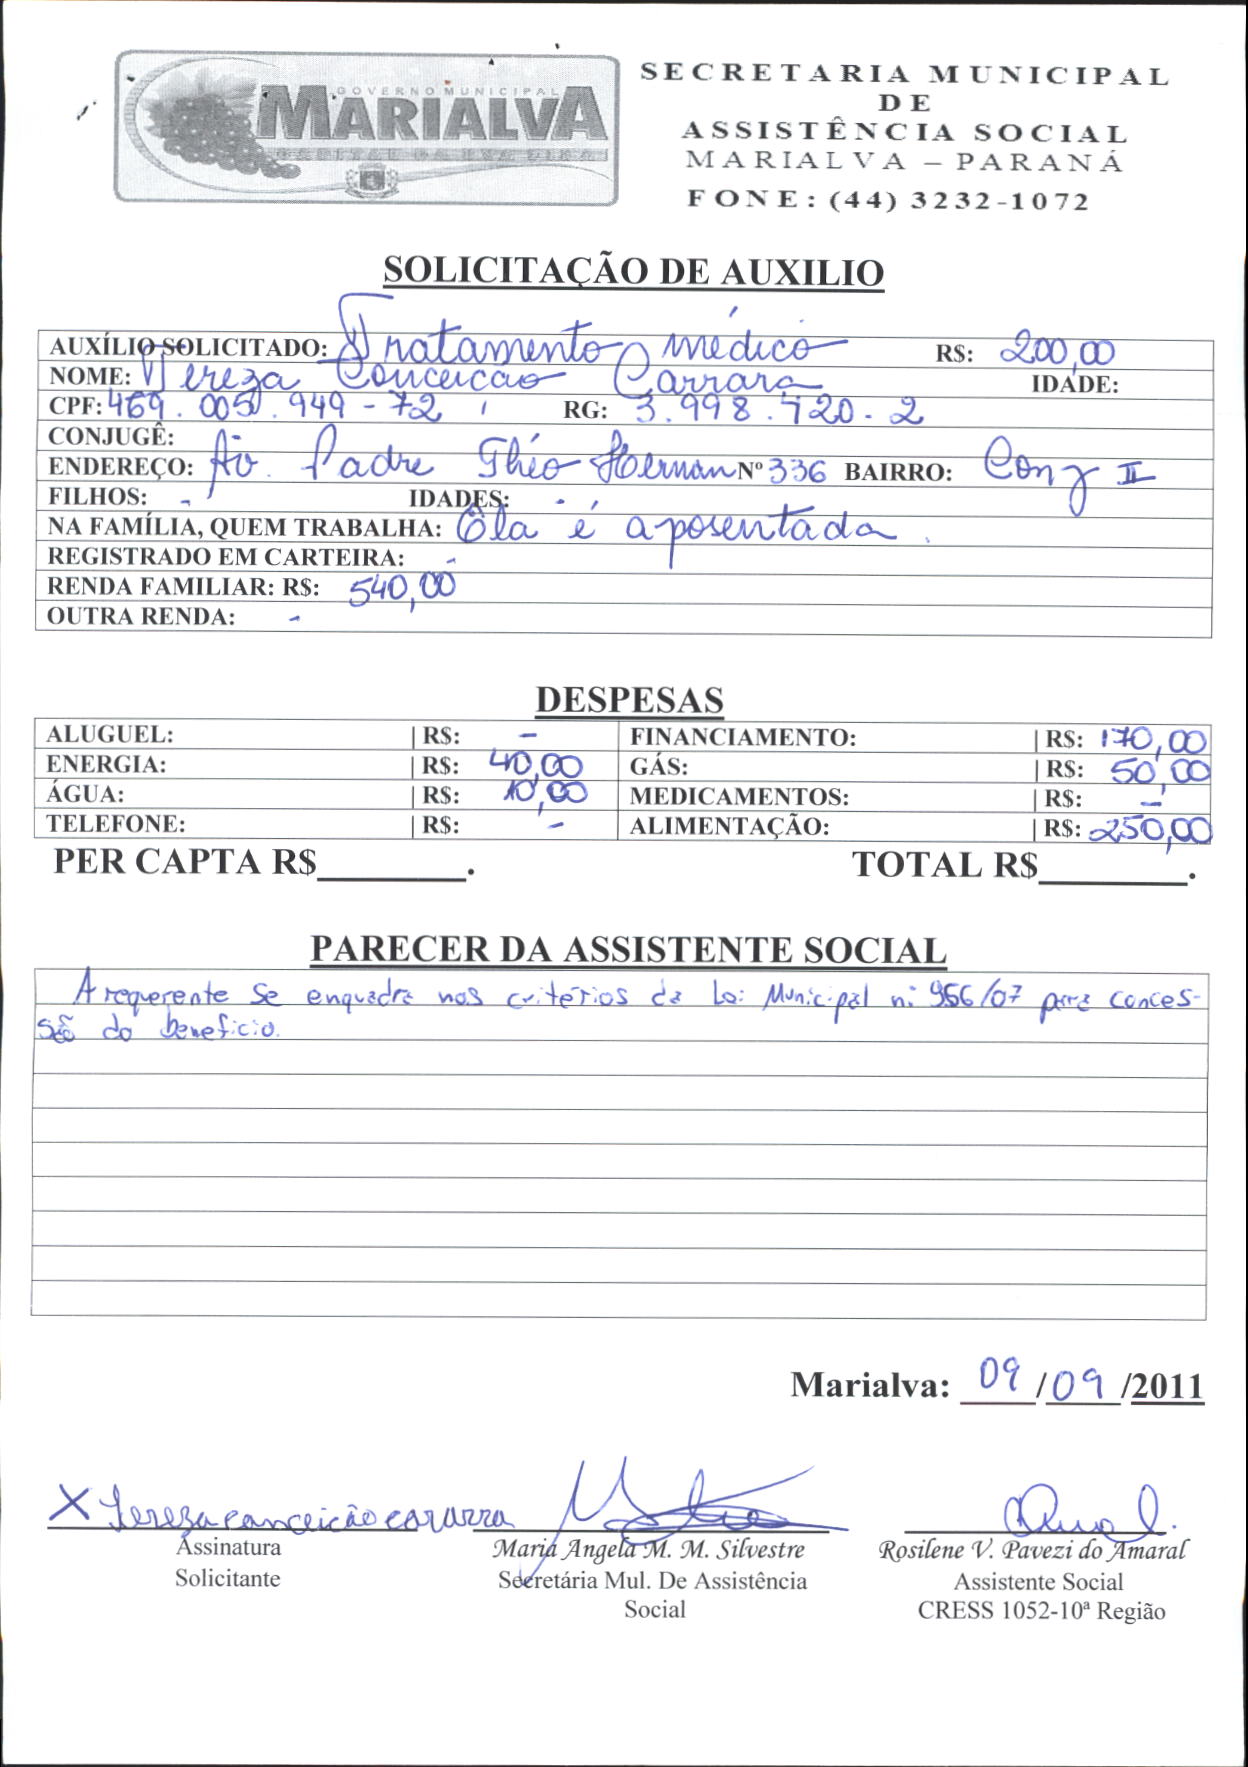 GOVERNO MUNICIPAL
MARIALVA
CAPITAL DA UVA FINA
SECRETARIA MUNICIPAL
DE
ASSISTÊNCIA SOCIAL
MARIALVA – PARANÁ
FONE: (44) 3232-1072
SOLICITAÇÃO DE AUXILIO
AUXÍLIO SOLICITADO: Tratamento médico R$: 200,00
NOME: Tereza Conceicao Carrara IDADE:
CPF: 469.005.949-72 RG: 3.998.720-2
CONJUGÊ:
ENDEREÇO: Av. Padre Théo Herman Nº 336 BAIRRO: Conj II
FILHOS: - IDADES: -
NA FAMÍLIA, QUEM TRABALHA: Ela é aposentada.
REGISTRADO EM CARTEIRA: -
RENDA FAMILIAR: R$: 540,00
OUTRA RENDA: -
DESPESAS
ALUGUEL: | R$: - FINANCIAMENTO: | R$: 170,00
ENERGIA: | R$: 40,00 GÁS: | R$: 50,00
ÁGUA: | R$: 10,00 MEDICAMENTOS: | R$: -
TELEFONE: | R$: - ALIMENTAÇÃO: | R$: 250,00
PER CAPTA R$________. TOTAL R$________.
PARECER DA ASSISTENTE SOCIAL
A requerente se enquadra nos critérios da Lei Municipal nº 956/07 para conces-
são do benefício.
Marialva: 09/09/2011
X Tereza conceição cararra
Assinatura
Solicitante
Maria Angela M. M. Silvestre
Secretária Mul. De Assistência
Social
Rosilene V. Pavezi do Amaral
Assistente Social
CRESS 1052-10ª Região